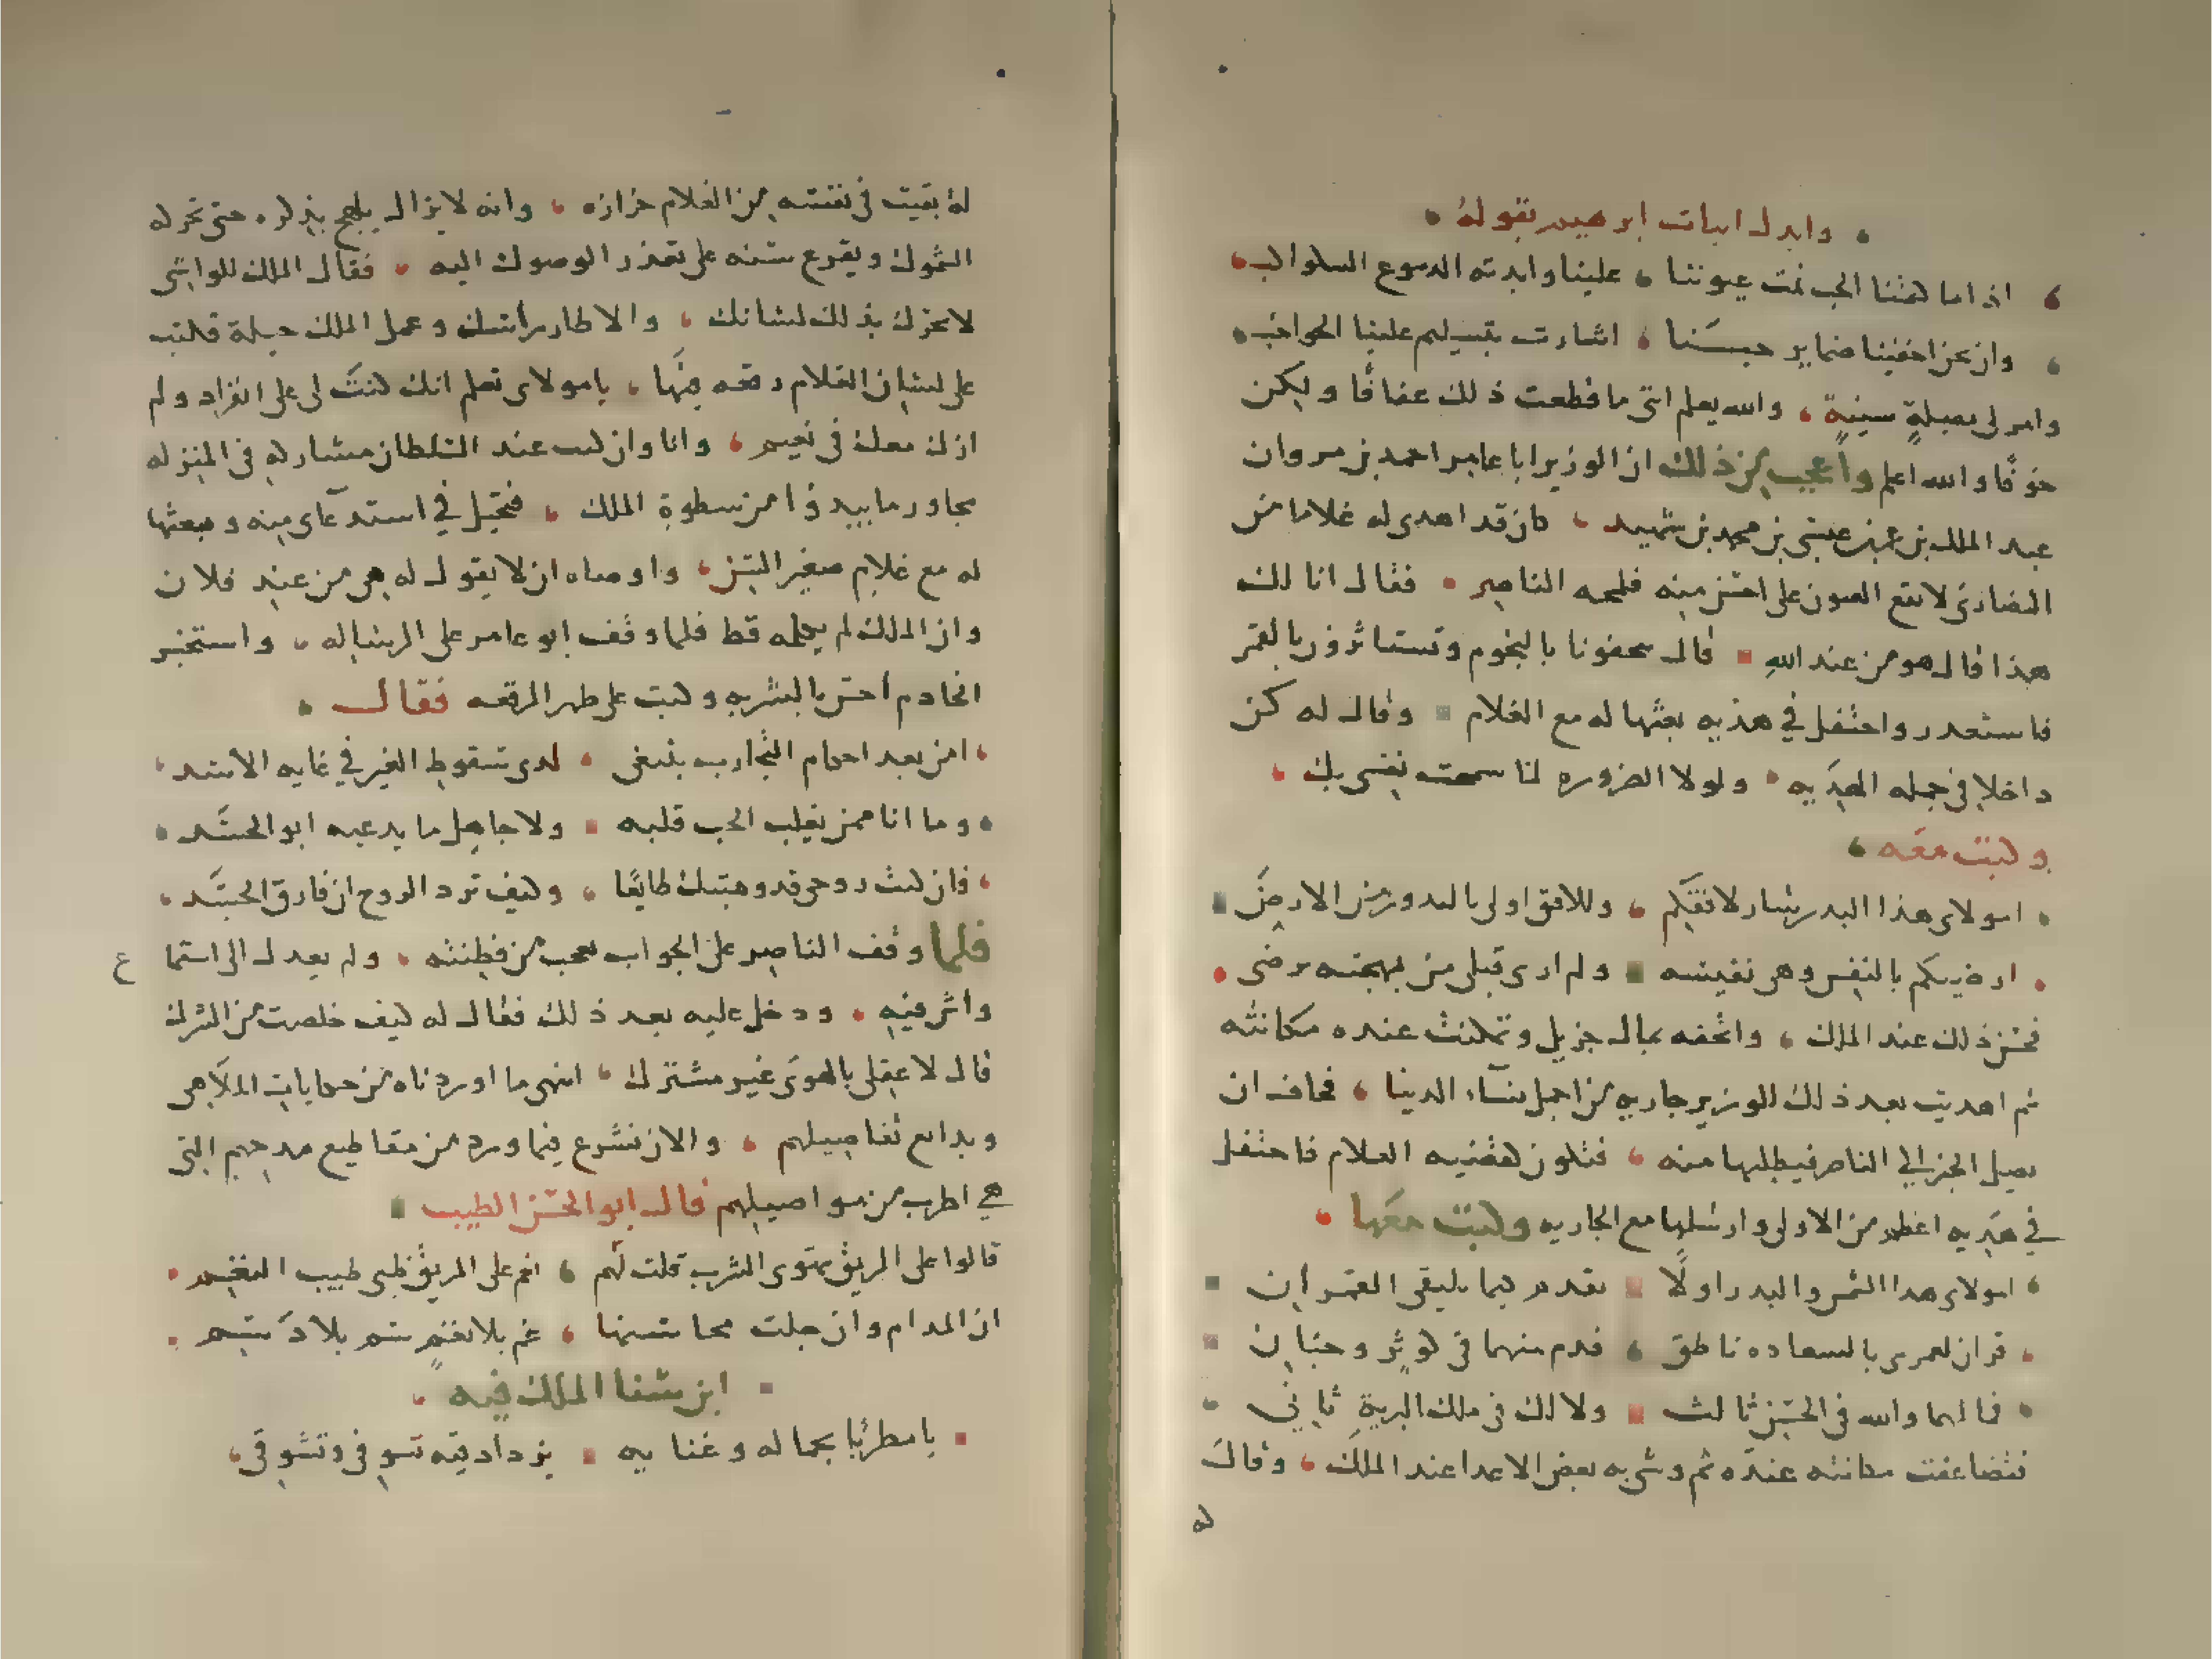 وابدل ابيات ابرهيم بقوله
اذا ما كتمنا الحب نمت عيوننا علينا وابدته الدموع السواكب
وان نحن اخفينا ضماير حبنا اشارت بتسليم علينا الحواجب
وامر لى بصلةٍ سنيةٍ والله يعلم انى ما قطعت ذلك عفافًا ولكن
خوفًا والله اعلم واعجب من ذلك ان الوزير ابا عامر احمد بن مروان
عبد الملك بن عمر بن عيسى بن محمد بن شهيد كان قد اهدى له غلاما من
النصارى لا تقع العيون على احسن منه فلمحه الناصر فقال انا لك
هذا قال هو من عند الله قال تتحفونا بالنجوم وتستاثرون بالقمر
فاستعدر واحتفل فى هديه بعثها له مع الغلام وقال له كن
داخلا فى جمله الهديه ولولا الضروره لما سمحت نفسى بك
وكتبت معه
امولاى هذا البدر سار لافقكم وللافق اولى بالبدور من الارض
ارضيكم بالنفس وهى نفيسه ولم ار قبلى من بمهجته يرضى
فحسن ذلك عند الملك واتحفه بمال جزيل وتمكنت عنده مكانته
ثم اهديت بعد ذلك للوزير جاريه من اجمل نساء الدنيا فخاف ان
يصل الخبر الى الناصر فيطلبها منه فتكون كقضيه الغلام فاحتفل
فى هديه اعظم من الاولى وارسلها مع الجاريه وكتبت معها
امولاى هذا الشمس والبدر اولًا تقدم كيما يلتقى القمران
قران لعمرى بالسعاده ناطق فدم منهما فى كوثر وجنان
فما لهما والله فى الحسن ثالث ولا لك فى ملك البرية ثانى
فتضاعفت مكانته عنده ثم وشى به بعض الاعدا عند الملك وقال
له
له بقيت فى نفسه من الغلام حزازه وانه لا يزال يلهج بذكره حتى تحركه
الشمول ويقرع سنه على تعذر الوصول اليه فقال الملك للواشى
لا تحرك بذلك لسانك والا طار راسك وعمل الملك حيلة فكتب
على لسان الغلام رقعه منها يا مولاى تعلم انك كنت لى على انفراد ولم
ازل معك فى نعيم وانا وان كنت عند السلطان مشاركه فى المنزله
محاور ما يبدو من سطوة الملك فتحيل فى استدعاى منه وبعثها
له مع غلام صغير السن واوصاه ان لا يقول له هى من عند فلان
وان الملك لم يكلمه قط فلما وقف ابو عامر على الرساله واستخبر
الخادم احس بالشربه وكتب على ظهر الرقعه فقال
امن بعد احكام التجارب ينبغى لدى سقوط العير فى غابه الاسد
وما انا ممن يغلب الحب قلبه ولا جاهل ما يدعيه ابو الحسد
فان كنت روحى قد وهبتك طايعًا وكيف ترد الروح ان فارق الجسد
فلما وقف الناصر على الجواب تعجب من فطنته ولم يعدل الى استماع
واش فيه ودخل عليه بعد ذلك فقال له كيف خلصت من الشرك
قال لا عقلى بالهوى غير مشترك انتهى ما اوردناه من حكايات الملاهى
وبدايع تفاصيلهم والان نشرع فيما ورد من مقاطيع مدحهم التى
هى اطرب من مواصيلهم قال ابو الحسن الطبيب
قالوا على الريق تهوى الشرب قلت لهم نعم على الريق ظبى طيب النغم
ان المدام وان جلت محاسنها غم بلا نغمٍ سم بلا دسم
ابن سنا الملك فيه
يا مطربًا بجماله وغنايه يزداد فيه تسوفى وتشوقى